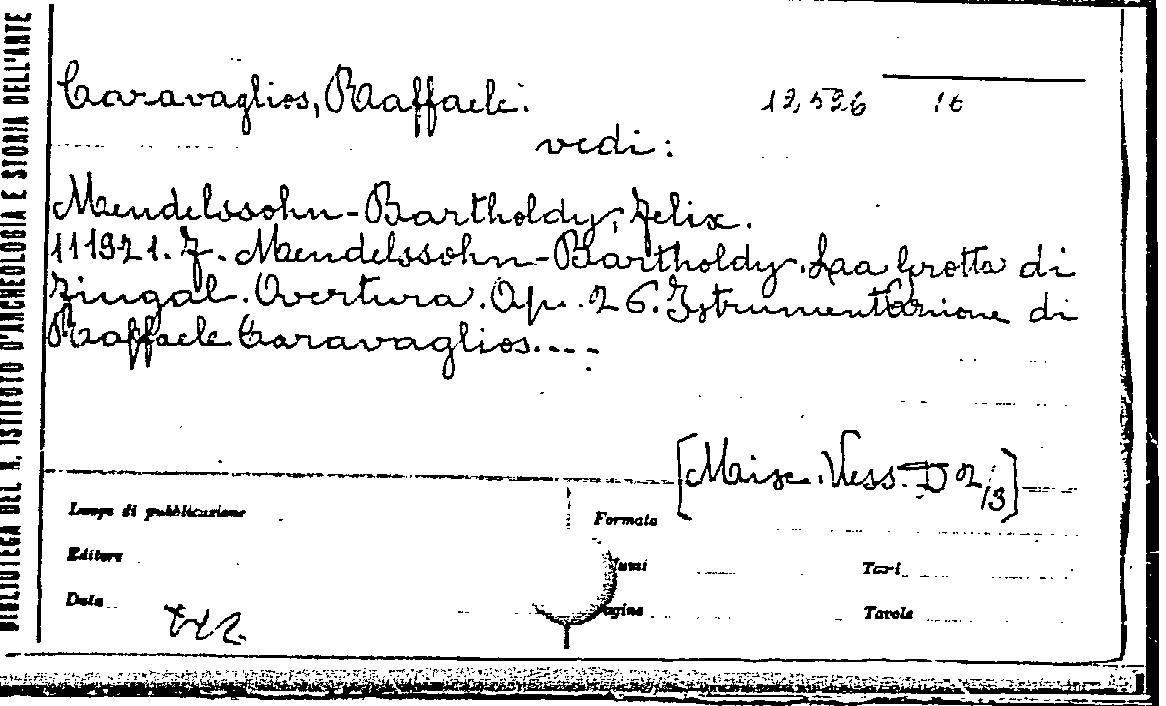 BIBLIOTECA DEL R. ISTITUTO D'ARCHEOLOGIA E STORIA DELL'ARTE
Caravaglios, Raffaele.
12,526
vedi:
Mendelssohn-Bartholdy, Felix.
111921. F. Mendelssohn-Bartholdy. Laa Grotta di
Fingal. Overtura. Op. 26. Istrumentazione di
Raffaele Caravaglios....
[Misc. Vess. D 2/3]
Luogo di pubblicazione
Formato
Editore
Tari
Data
Pagine
Tavole